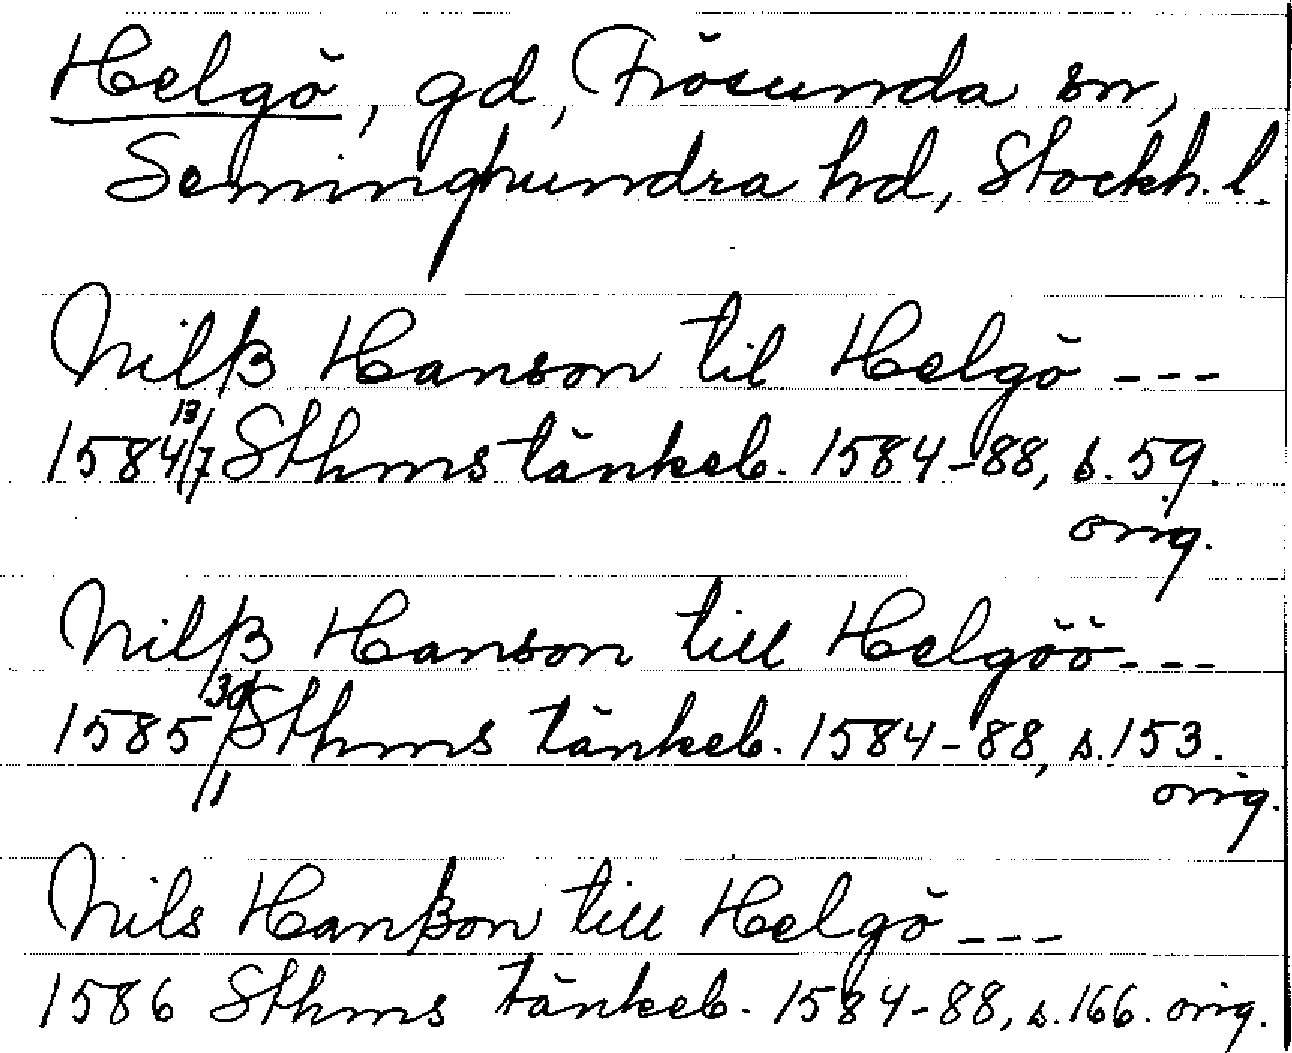 Helgö, gd, Frösunda sn,
Seminghundra hd, Stockh. l.
Nilß Hanson til Helgö ---
1584 13/7 Sthms tänkeb. 1584-88, s. 59.
orig.
Nilß Hanson till Helgöö---
1585 30/1 Sthms tänkeb. 1584-88, s. 153.
orig.
Nils Hanßon till Helgö ---
1586 Sthms tänkeb. 1584-88, s. 166. orig.